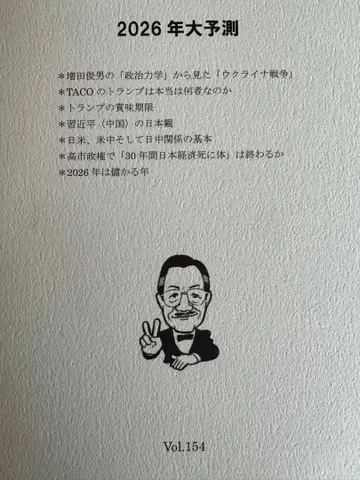 2026年大予測
＊増田俊男の「政治力学」から見た「ウクライナ戦争」
＊TACOのトランプは本当は何者なのか
＊トランプの賞味期限
＊習近平（中国）の日本観
＊日米、米中そして日中関係の基本
＊高市政権で「30年間日本経済死に体」は終わるか
＊2026年は儲かる年
Vol.154